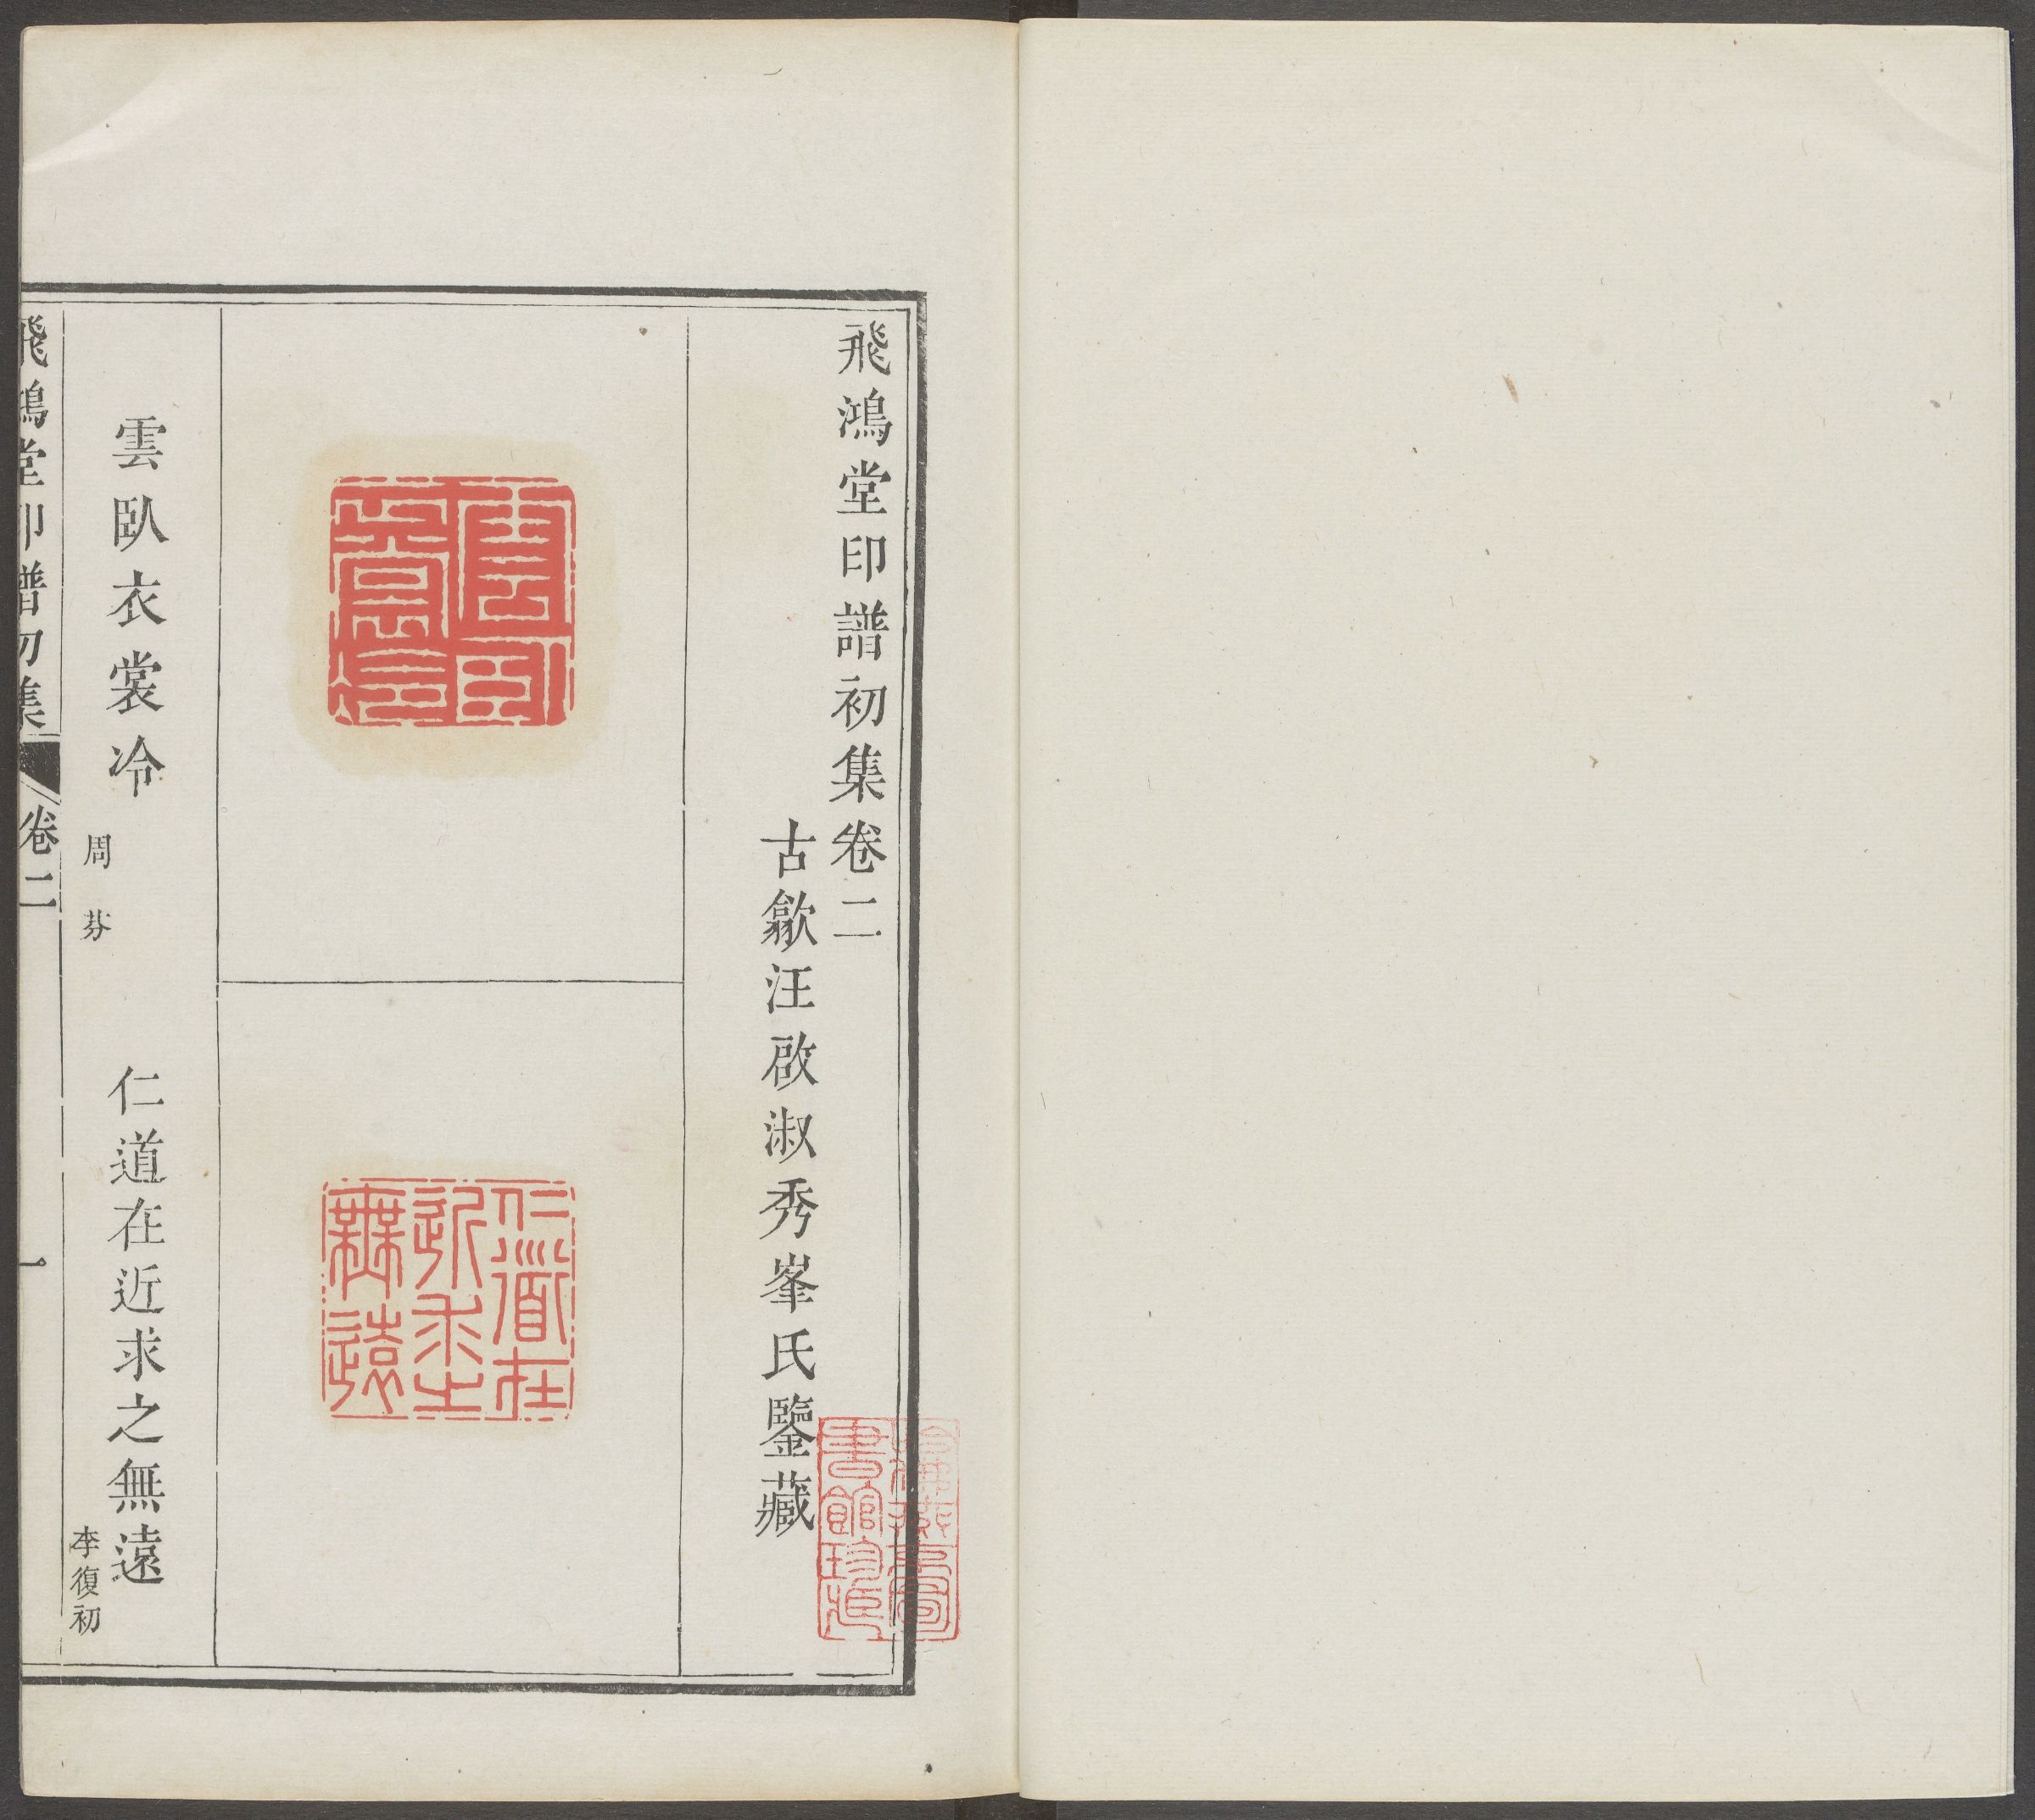 飛鴻堂印譜初集卷二
古歙汪啟淑秀峯氏鑒藏
仁道在
近求之
無遠
雲臥衣裳冷
周芬
仁道在近求之無遠
李復初
飛鴻堂印譜初集
卷二
一